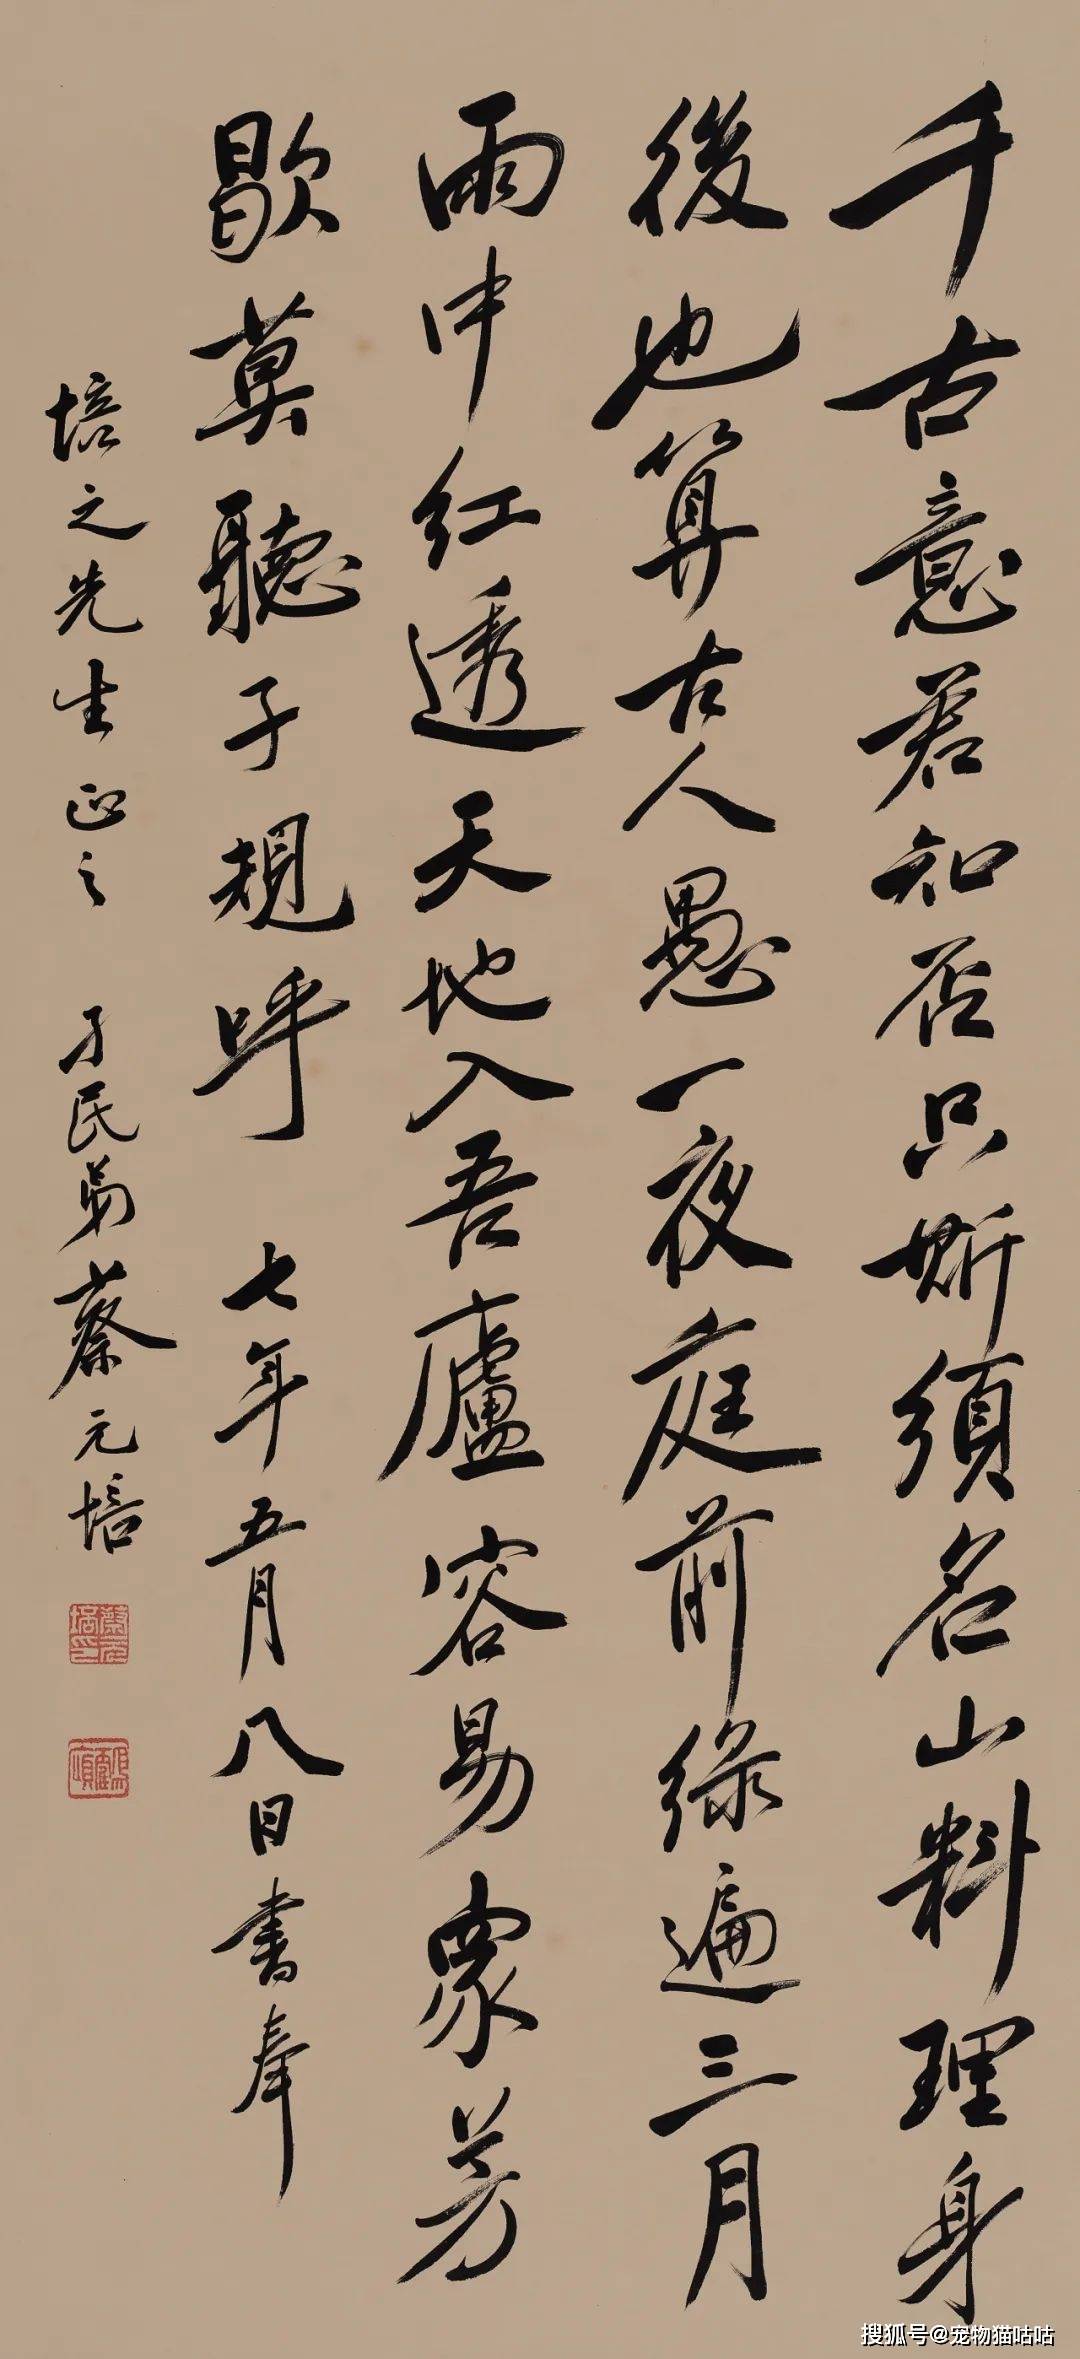 千古意君知否只斯須名山料理身
後也算古人愚一夜庭前綠遍三月
雨中紅透天地入吾廬容易衆芳
歇莫聽子規呼 七年五月八日書奉
培之先生正之 孑民弟蔡元培
蔡元培印
搜狐号@宠物猫咕咕